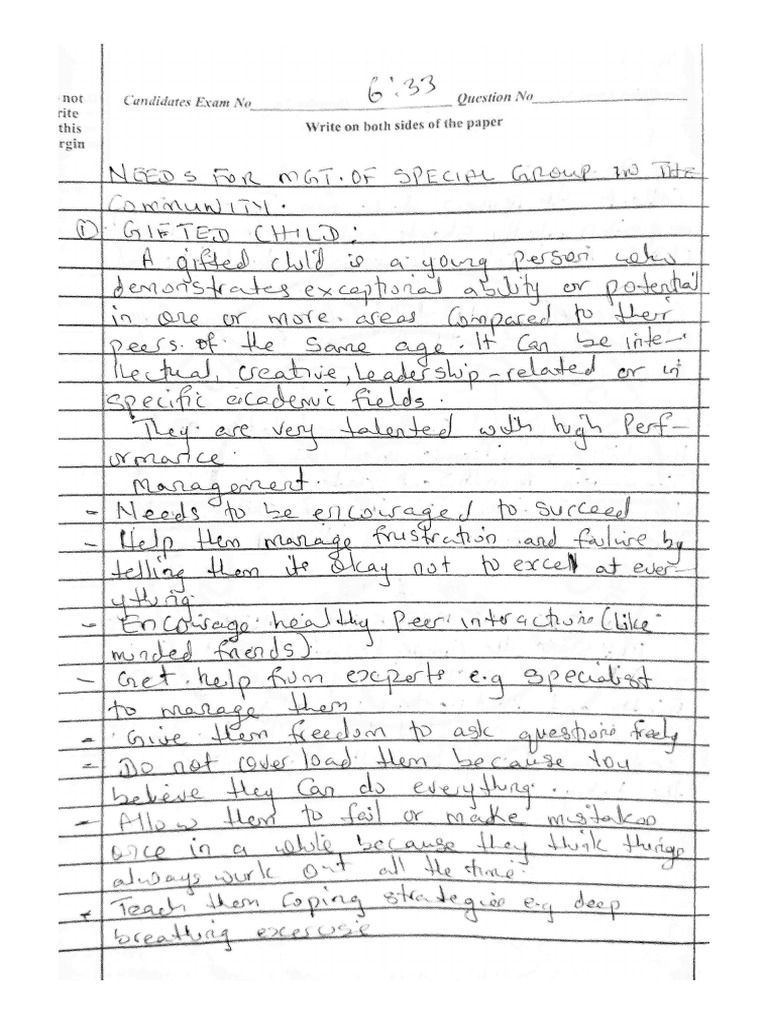 6:33
not
rite
this
rgin
Candidates Exam No Question No
Write on both sides of the paper
NEEDS FOR MGT. OF SPECIAL GROUP IN THE
COMMUNITY.
① GIFTED CHILD:
A gifted child is a young person who
demonstrates exceptional ability or potential
in one or more areas compared to their
peers of the same age. It can be inte-
llectual, creative, leadership-related or in
specific academic fields.
They are very talented with high Perf-
ormance
Management.
- Needs to be encouraged to succeed
- Help them manage frustration and failure by
telling them its okay not to excel at ever-
ything
- Encourage healthy Peer interaction (like
minded friends)
- Get help from experts e.g specialist
to manage them
- Give them freedom to ask questions freely
- Do not over load them because you
believe they can do everything..
- Allow them to fail or make mistakes
once in a while, because they think things
always work out all the time.
- Teach them coping strategies e.g deep
breathing excercise